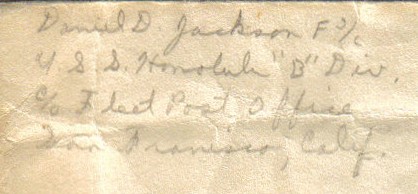 Daniel D. Jackson F 2/c
U S S. Honolulu "B" Div.
c/o Fleet Post Office
San Francisco, Calif.